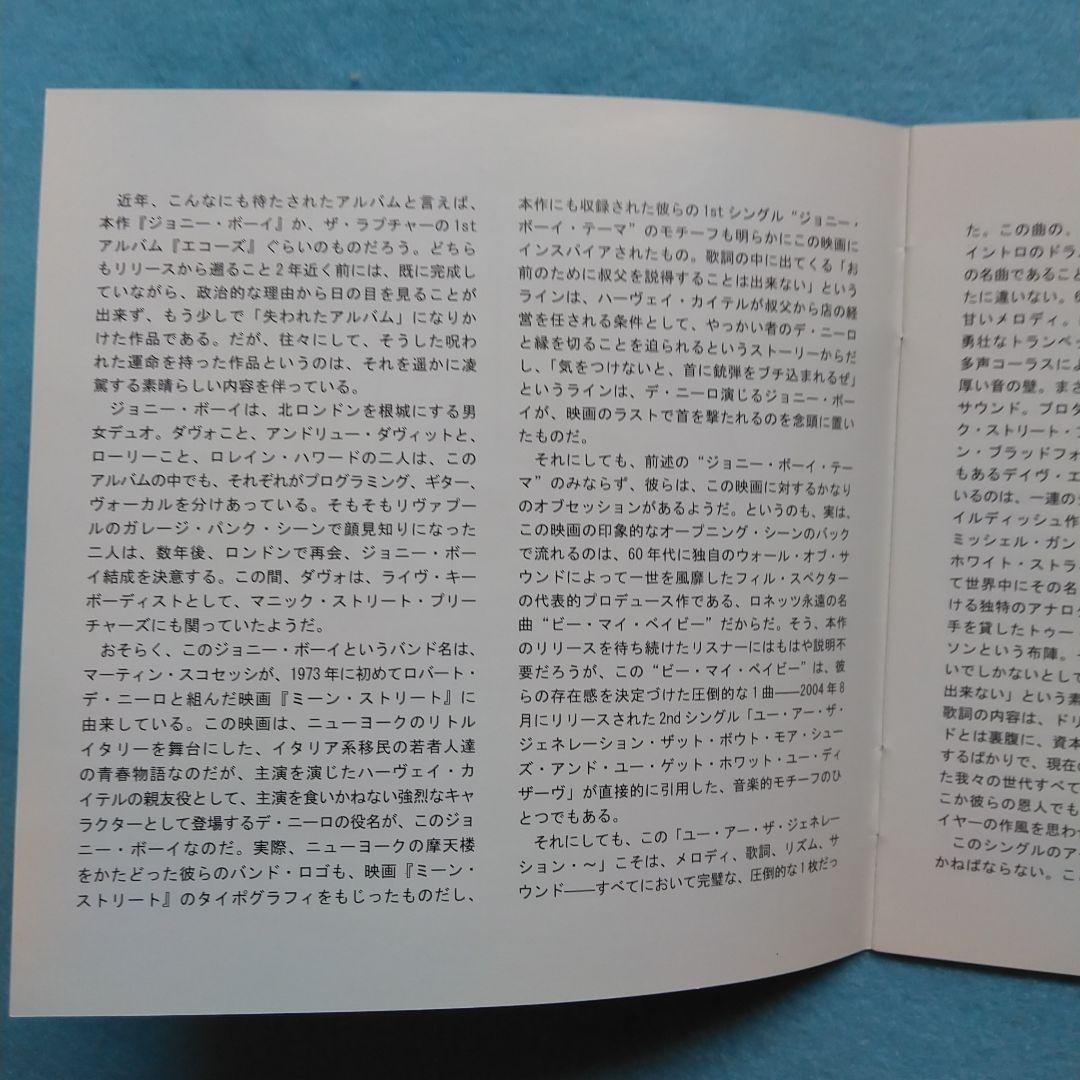 近年、こんなにも待たされたアルバムと言えば、
本作『ジョニー・ボーイ』か、ザ・ラプチャーの1st
アルバム『エコーズ』ぐらいのものだろう。どちら
もリリースから遡ること2年近く前には、既に完成し
ていながら、政治的な理由から日の目を見ることが
出来ず、もう少しで「失われたアルバム」になりか
けた作品である。だが、往々にして、そうした呪わ
れた運命を持った作品というのは、それを遥かに凌
駕する素晴らしい内容を伴っている。
ジョニー・ボーイは、北ロンドンを根城にする男
女デュオ。ダヴォこと、アンドリュー・ダヴィットと、
ローリーこと、ロレイン・ハワードの二人は、この
アルバムの中でも、それぞれがプログラミング、ギター、
ヴォーカルを分けあっている。そもそもリヴァプ
ールのガレージ・パンク・シーンで顔見知りになった
二人は、数年後、ロンドンで再会、ジョニー・ボー
イ結成を決意する。この間、ダヴォは、ライヴ・キー
ボーディストとして、マニック・ストリート・プリー
チャーズにも関っていたようだ。
おそらく、このジョニー・ボーイというバンド名は、
マーティン・スコセッシが、1973年に初めてロバート・
デ・ニーロと組んだ映画『ミーン・ストリート』に
由来している。この映画は、ニューヨークのリトル
イタリーを舞台にした、イタリア系移民の若者人達
の青春物語なのだが、主演を演じたハーヴェイ・カ
イテルの親友役として、主演を食いかねない強烈なキャ
ラクターとして登場するデ・ニーロの役名が、このジョ
ニー・ボーイなのだ。実際、ニューヨークの摩天楼
をかたどった彼らのバンド・ロゴも、映画『ミーン・
ストリート』のタイポグラフィをもじったものだし、
本作にも収録された彼らの1stシングル“ジョニー・
ボーイ・テーマ”のモチーフも明らかにこの映画に
インスパイアされたもの。歌詞の中に出てくる「お
前のために叔父を説得することは出来ない」という
ラインは、ハーヴェイ・カイテルが叔父から店の経
営を任される条件として、やっかい者のデ・ニーロ
と縁を切ることを迫られるというストーリーからだ
し、「気をつけないと、首に銃弾をブチ込まれるぜ」
というラインは、デ・ニーロ演じるジョニー・ボー
イが、映画のラストで首を撃たれるのを念頭に置い
たものだ。
それにしても、前述の“ジョニー・ボーイ・テー
マ”のみならず、彼らは、この映画に対するかなり
のオブセッションがあるようだ。というのも、実は、
この映画の印象的なオープニング・シーンのバック
で流れるのは、60年代に独自のウォール・オブ・サ
ウンドによって一世を風靡したフィル・スペクター
の代表的プロデュース作である、ロネッツ永遠の名
曲“ビー・マイ・ベイビー”だからだ。そう、本作
のリリースを待ち続けたリスナーにはもはや説明不
要だろうが、この“ビー・マイ・ベイビー”は、彼
らの存在感を決定づけた圧倒的な1曲――2004年8
月にリリースされた2ndシングル「ユー・アー・ザ・
ジェネレーション・ザット・ボウト・モア・シュー
ズ・アンド・ユー・ゲット・ホワット・ユー・ディ
ザーヴ」が直接的に引用した、音楽的モチーフのひ
とつでもある。
それにしても、この「ユー・アー・ザ・ジェネレー
ション・～」こそは、メロディ、歌詞、リズム、サ
ウンド――すべてにおいて完璧な、圧倒的な1枚だっ
た。この曲の、
イントロのドラ
の名曲であること
たに違いない。
甘いメロディ。
勇壮なトランペッ
多声コーラスによ
厚い音の壁。まさ
サウンド。プロダ
ク・ストリート・
ン・ブラッドフォ
もあるデイヴ・エ
いるのは、一連の
イルディッシュ作
ミッシェル・ガン
ホワイト・ストラ
て世界中にその名
ける独特のアナログ
手を貸したトゥー
ソンという布陣。
いでしかないとして
出来ない」という素
歌詞の内容は、ドリ
ドとは裏腹に、資本
するばかりで、現在
た我々の世代すべて
こか彼らの恩人でも
イヤーの作風を思わ
このシングルのア
かねばならない。こ